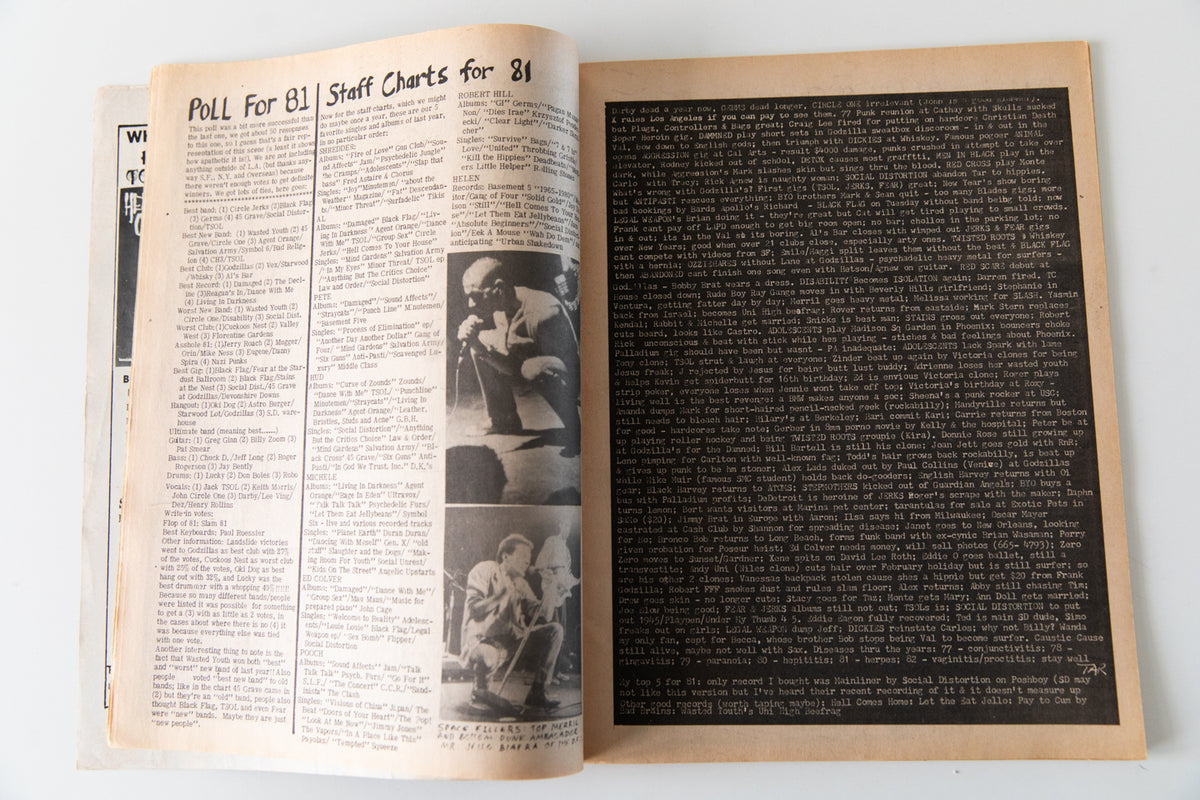 WH
TO
HE
B
Poll For 81
This poll was a bit more successful than
the last one, we got about 50 resopnses
to this one, so I guess that's a fair rep-
resentation of this scene (a least it shows
how apathetic it is!). We are not including
anything outside of L.A. (but thanks any-
way S.F., N.Y. and Overseas) because
there weren't enough votes to get definite
winners. We got lots of ties, here goes:
Best band: (1) Circle Jerks (2)Black Flag
(3) Germs (4) 45 Grave/Social Distor-
tion/TSOL
Best New Band: (1) Wasted Youth (2) 45
Grave/Circle One (3) Agent Orange/
Salvation Army/Symbol 6/Bad Relig-
ion (4) CH3/TSOL
Best Club: (1)Godzillas (2) Vex/Starwood
/Whisky (3) Al's Bar
Best Record: (1) Damaged (2) The Decl-
ine (3)Reagan's In/Dance With Me
(4) Living In Darkness
Worst New Band: (1) Wasted Youth (2)
Circle One/Disability (3) Social Dist.
Worst Club:(1)Cuckoos Nest (2) Valley
West (3) Florentine Gardens
Asshole 81: (1)Jerry Roach (2) Mugger/
Orin/Mike Ness (3) Eugene/Danny
Spira (4) Nazi Punks
Best Gig: (1)Black Flag/Fear at the Star-
dust Ballroom (2) Black Flag/Stains
at the Nest (3) Social Dist./45 Grave
at Godzillas/Devonshire Downs
Hangout: (1)Oki Dog (2) Astro Berger/
Starwood Lot/Godzillas (3) S.D. ware-
house
Ultimate band (meaning best......)
Guitar: (1) Greg Ginn (2) Billy Zoom (3)
Pat Smear
Bass: (1) Chuck D./Jeff Long (2) Roger
Rogerson (3) Jay Bently
Drums: (1) Lucky (2) Don Boles (3) Robo
Vocals: (1) Jack TSOL (2) Keith Morris/
John Circle One (3) Darby/Lee Ving/
Dez/Henry Rollins
Write-in votes:
Flop of 81: Slam 81
Best Keyboards: Paul Roessler
Other information: Landslide victories
went to Godzillas as best club with 27%
of the votes, Cuckoos Nest as worst club
with 25% of the votes, Oki Dog as best
hang out with 32%, and Lucky was the
best drummer with a whopping 49%!!!!!
Because so many different bands/people
were listed it was possible for something
to get a (3) with as little as 2 votes, in
the cases about where there is no (4) it
was because everything else was tied
with one vote.
Another interesting thing to note is the
fact that Wasted Youth won both "best"
and "worst" new band of last year!! Also
people voted "best new band" to old
bands; like in the chart 45 Grave came in
(2) but they're an "old" band, people also
thought Black Flag, TSOL and even Fear
were "new" bands. Maybe they are just
"new people".
Staff Charts for 81
Now for the staff charts, which we might
do maybe once a year, these are our 5
favorite singles and albums of last year,
in no particular order:
SHREDDER:
Albums: "Fire of Love" Gun Club/"Sou-
nd Affects" Jam/"Psychedelic Jungle"
the Cramps/"Adolescents"/"Slap that
bass" Fred Astaire & Chorus
Singles: "Joy"Minutemen/ "about the
Weather" Magzine/ "Fat" Descendan-
ts/"Minor Threat"/"Surfadelic" Tikis
AL
Albums: "Damaged" Black Flag/"Liv-
ing in Darkness" Agent Orange/"Dance
With Me" TSOL/"Group Sex" Circle
Jerks/ "Hell Comes To Your House"
Singles: "Mind Gardens" Salvation Army
/"In My Eyes" Minor Threat/ TSOL ep
/"Anything But the Critics Choice"
Law and Order/"Social Distortion"
PETE
Albums: "Damaged"/"Sound Affects"/
"Straycats"/"Punch Line" Minutemen/
"Basement Five
Singles: "Process of Elimination" ep/
"Another Day Another Dollar" Gang of
Four/ "Mind Gardens" Salvation Army/
"Six Guns" Anti-Pasti/"Scavenged Lu-
xury" Middle Class
HUD
Albums: "Curse of Zounds" Zounds/
"Dance With Me" TSOL/ "Punchline"
Minutemen/"Straycats"/"Living In
Darkness" Agent Orange/"Leather,
Bristles, Studs and Acne" G.B.H.
Singles: "Social Distortion"/"Anything
But the Critics Choice" Law & Order/
"Mind Gardens" Salvation Army/ "Bl-
ack Cross" 45 Grave/"Six Guns" Anti-
Pasti/"In God We Trust, Inc." D.K.'s
MICHELE
Albums: "Living In Darkness" Agent
Orange/"Rage in Eden" Ultravox/
"Talk Talk Talk" Psychedelic Furs/
"Let Them Eat Jellybeans"/ Symbol
Six - live and various recorded tracks
Singles: "Planet Earth" Duran Duran/
"Dancing With Myself" Gen. X/ "old
stuff" Slaughter and the Dogs/ "Mak-
ing Room For Youth" Social Unrest/
"Kids On The Street" Angelic Upstarts
ED COLVER
Albums: "Damaged"/"Dance With Me"/
"Group Sex"/ Mau Maus/"Music for
prepared piano" John Cage
Singles: "Welcome to Reality" Adolesc-
ents/"Louie Louie" Black Flag/Legal
Weapon ep/ "Sex Bomb" Flipper/
Social Distortion
POOCH
Albums: "Sound Affects" Jam/"Talk
Talk Talk" Psych. Furs/ "Go For It"
S.L.F./ "The Concert" C.C.R./"Sand-
inista" The Clash
Singles: "Visions of China" Japan/ The
Beat "Doors of Your Heart"/ The Pop!
"Look At Me Now"/"Jimmy Jones"
The Vapors/"In A Place Like This"
Psyolas/ "Tempted" Squeeze
ROBERT HILL
Albums: "GI" Germs/"Pagan
Non/ "Dies Irae" Krzysztof
ecki/ "Clear Light"/"Darker
cher"
Singles: "Survive" Bags/"7 & 7 Is"
Love/"United" Throbbing
"Kill the Hippies" Deadbeats/
ers Little Helper" Rolling Stones
HELEN
Records: Basement 5 "1965-1980"/
ior/Gang of Four "Solid Gold"/
ision "Still"/"Hell Comes To Your
se"/"Let Them Eat Jellybeans"/
"Absolute Beginners"/"Social Dist
ion"/Eek A Mouse "Wah Do Dem"
anticipating "Urban Shakedown
SPACE FILLERS: TOP MERRIL
AND BOTTOM PUNK AMBASSADOR
MR. JELLO BIAFRA OF THE D.K.
Darby dead a year now, GERMS dead longer. CIRCLE ONE irrelevant (John is a good
X rules Los Angeles if you can pay to see them. 77 Punk reunion at Cathay with Skulls sucked
but Plugz, Controllers & Bags great; Craig Lee fired for putting on hardcore Christian Death
Super Heroin gig. DAMNED play short sets in Godzilla sweatbox discoroom - in & out in the
Val, bow down to English gods; then triumph with DICKIES at Whiskey. Famous poguer ANIMAL
opens AGGRESSION gig at Cal Arts - result $4000 damage, punks crushed in attempt to take over
elevator. Rodney kicked out of school. DETOX causes most graffiti. MEN IN BLACK play in the
dark, while Aggression's Mark slashes skin but sings thru the blood. RED CROSS play Monte
Carlo with Tracy; Rick Agnew is naughty woman; SOCIAL DISTORTION abandon Tar to hippies.
What's wrong with Godzilla's? First gigs (TSOL, JERKS, FEAR) great; New Year's show boring
but ANTIPASTI rescues everything; BYO brothers Mark & Sean quit - too many Blades gigs; more
bad bookings by Bards Apollo's Richard - BLACK FLAG on Tuesday without band being told; now
LEGAL WEAPON's Brian doing it - they're great but Cat will get tired playing to small crowds.
Frank cant pay off LAPD enough to get big room open; no bar; cholos in the parking lot; no
in & out; its in the Val so its boring. Al's Bar closes with wimped out JERKS & FEAR gigs
over New Years; good when over 21 clubs close, especially arty ones. TWISTED ROOTS & Whiskey
cant compete with videos from SF; Smile/Bagel split leaves them without the beat & BLACK FLAG
with a hernia; OZZIEHARES without Lane at Godzillas - psychadelic heavy metal for surfers -
then ABANDONED cant finish one song even with Betson/Agnew on guitar. RED SCARE debut at
God'llas - Bobby Brat wears a dress. DISABILITY becomes ISOLATION again; Darron fired. TC
House closed down; Rude Boy Ray Gange moves in with Beverly Hills girlfriend; Stephanie in
Ventura, getting fatter day by day; Merril goes heavy metal; Melissa working for SLASH. Yasmin
back from Israel; becomes Uni High beefrag; Rover returns from eastside; Mark Stern replaces
Kendal; Rabbit & Richelle get married; Snicks is best man; STAINS gross out everyone; Robert
cuts beard, looks like Castro. ADOLESCENTS play Madison Sq Garden in Phoenix; bouncers choke
Rick unconscious & beat with stick while hes playing - stiches & bad feelings about Phoenix.
Palladium gig should have been but wasnt - PA inadequate; ADOLESCENTS lack Spark with lame
Tony clone; TSOL strut & laugh at everyone; Zinder beat up again by Victoria clones for being
Jesus freak; J rejected by Jesus for being butt lust buddy; Adrienne loses her wasted youth
& helps Kevin get spiderbutt for 16th birthday; Ed is envious Victoria clone; Roger plays
strip poker, everyone loses when Jennie wont take off top; Victoria's birthday at Roxy -
living well is the best revenge: a BMW makes anyone a soc; Sheena's a punk rocker at USC;
Amanda dumps Mark for short-haired pencil-necked geek (rockabilly); Handyville returns but
still needs to bleach hair; Hilary's at Berkeley; Hari commit Kari; Carrie returns from Boston
for good - hardcores take note; Gerber in 8mm porno movie by Kelly & the hospital; Peter be at
up playing roller hockey and being TWISTED ROOTS groupie (Kira). Donnie Rose still growing up
at Godzilla's for the Damned; Bill Bartell is still his clone; Joan Jett goes gold with RnR;
Leno pimping for Carlton with well-known fag; Todd's hair grows back rockabilly, is beat up
& gives up punk to be hm stoner; Alex Lads duked out by Paul Collins (Venice) at Godzillas
while Mike Muir (famous SMC student) holds back do-gooders; English Harvey returns with Oi
gear; Black Harvey returns to ATOMS; STEPMOTHERS kicked out of Guardian Angels; BYO buys a
bus with Palladium profits; DeDetroit is heroine of JERKS Roger's scrape with the maker; Daphn
turns lemon; Bert wants visitors at Marina pet center; tarantulas for sale at Exotic Pets in
SaMo ($20); Jimmy Brat in Europe with Aaron; Ilsa says hi from Milwaukee; Oscar Mayer
castrated at Cash Club by Shannon for spreading disease; Janet goes to New Orleans, looking
for Mo; Bronco Bob returns to Long Beach, forms funk band with ex-cynic Brian Wasaman; Perry
given probation for Poseur heist; Ed Colver needs money, will sell photos (665- 4793); Zero
Zero moves to Sunset/Gardner; Xene spits on David Lee Roth; Eddie O goes ballet, is still a
transvestite; Andy Uni (Niles clone) cuts hair over February holiday but is still surfer; so
are his other 2 clones; Vanessas backpack stolen cause shes a hippie but get $20 from Frank
Godzilla; Robert FFF smokes dust and rules slam floor; Alex returns; Abby still chasing Tim;
Drew goes skin - no longer cute; Stacy goes for Taz; Monte gets Mary; Ann Doll gets married;
Joe Slow being good; FEAR & JERKS albums still not out; TSOLs is; SOCIAL DISTORTION to put
out 1945/Playpen/Under My Thumb 4 5. Eddie Eagon fully recovered; Ted is main SD dude, Simo
freaks out on girls; LEGAL WEAPON dump Jeff; DICKIES reinstate Carlos; why not Billy? Wanda
my only fan, cept for Hecca, whose brother Bob stops being Val to become surfer. Caustic Cause
still alive, maybe not well with Sax. Diseases thru the years: 77 - conjunctivitis; 78 -
gingavitis; 79 - paranoia; 80 - hepititis; 81 - herpes; 82 - vaginitis/proctitis; stay well
My top 5 for 81: only record I bought was Mainliner by Social Distortion on Poshboy (SD may
not like this version but I've heard their recent recording of it & it doesn't measure up
Other good records (worth taping maybe): Hell Comes Home; Let the Eat Jello; Pay to Cum by
Bad Brains; Wasted Youth's Uni High Beefrag